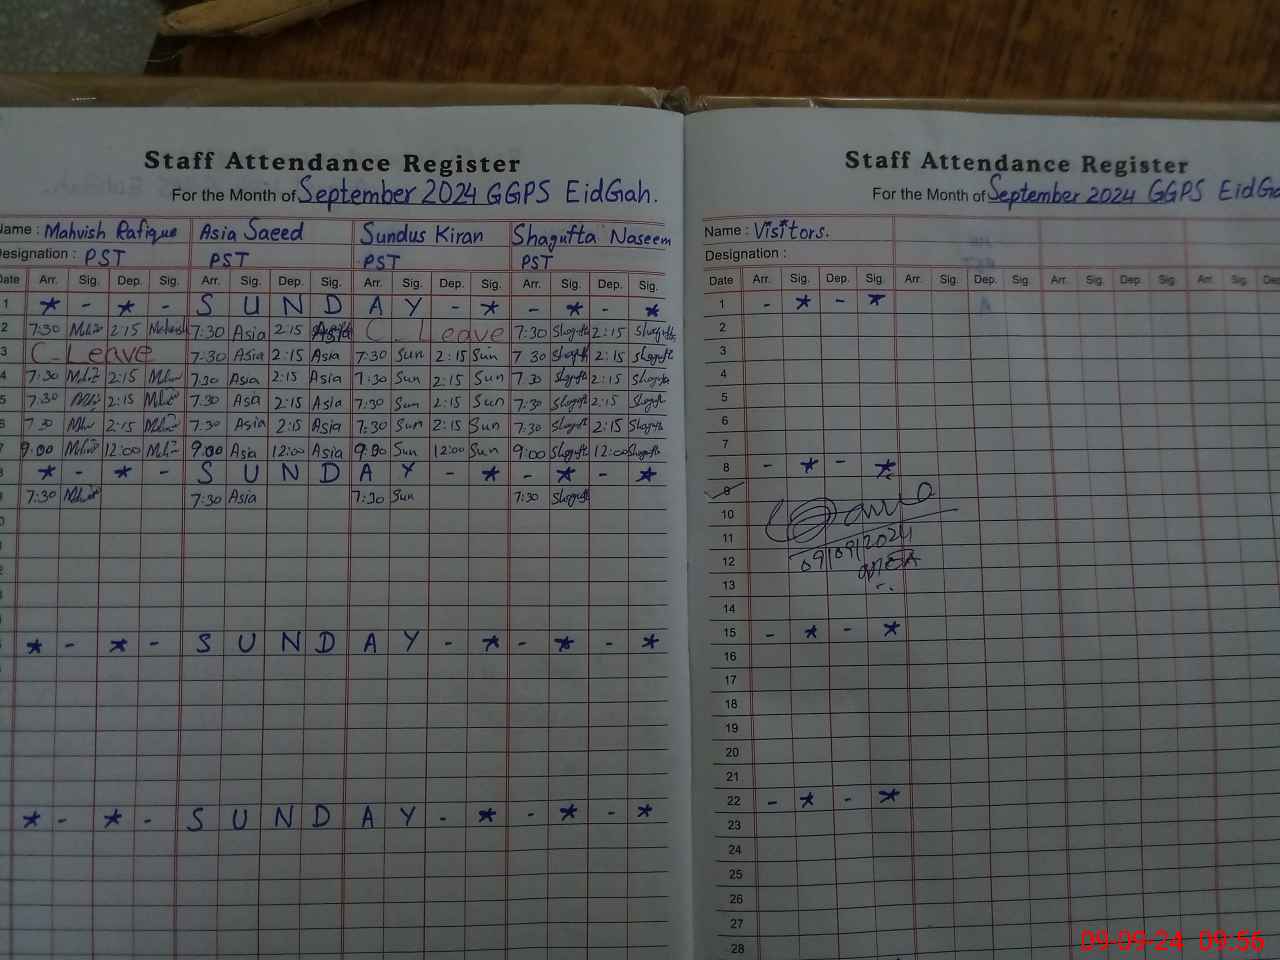 Staff Attendance Register
For the Month of September 2024 GGPS EidGah.
Name : Mahvish Rafique Asia Saeed Sundus Kiran Shagufta Naseem
Designation : PST PST PST PST
Date Arr. Sig. Dep. Sig. Arr. Sig. Dep. Sig. Arr. Sig. Dep. Sig. Arr. Sig. Dep. Sig.
1 * - * - S U N D A Y - * - * - *
2 7:30 2:15 Mahvish 7:30 Asia 2:15 Asia C. Leave 7:30 Shagufta 2:15 Shagufta
3 C. Leave 7:30 Asia 2:15 Asia 7:30 Sun 2:15 Sun 7:30 Shagufta 2:15 Shagufta
4 7:30 2:15 7:30 Asia 2:15 Asia 7:30 Sun 2:15 Sun 7:30 Shagufta 2:15 Shagufta
5 7:30 2:15 7:30 Asia 2:15 Asia 7:30 Sun 2:15 Sun 7:30 Shagufta 2:15 Shagufta
6 7:30 2:15 7:30 Asia 2:15 Asia 7:30 Sun 2:15 Sun 7:30 Shagufta 2:15 Shagufta
7 9:00 12:00 9:00 Asia 12:00 Asia 9:00 Sun 12:00 Sun 9:00 Shagufta 12:00 Shagufta
8 * - * - S U N D A Y - * - * - *
9 7:30 7:30 Asia 7:30 Sun 7:30 Shagufta
* - * - S U N D A Y - * - * - *
* - * - S U N D A Y - * - * - *
Staff Attendance Register
For the Month of September 2024 GGPS EidGa
Name : Visitors.
Designation :
Date Arr. Sig. Dep. Sig. Arr. Sig. Dep. Sig. Arr. Sig. Dep. Sig. Arr. Sig. Dep. Sig.
1 - * - *
2
3
4
5
6
7
8 - * - *
9
10
11
12 09/09/2024
MEA
13
14
15 - * - *
16
17
18
19
20
21
22 - * - *
23
24
25
26
27
28
09-09-24 09:56